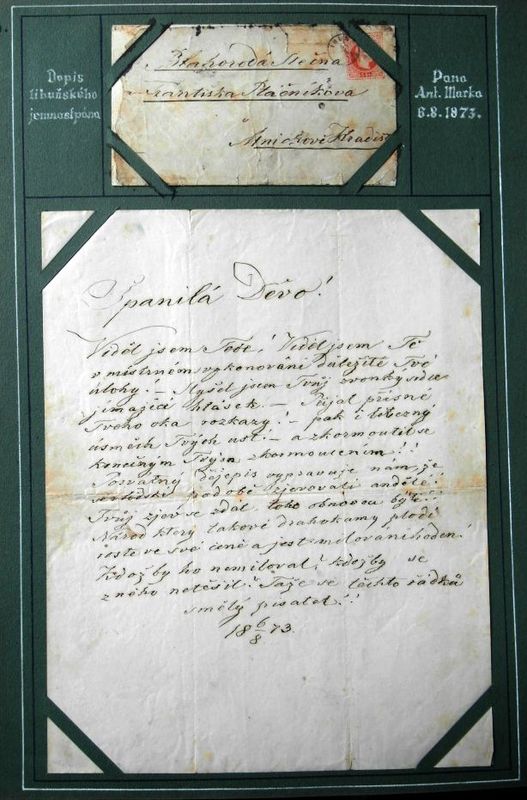 Dopis
libuňského
jemnostpána
Pana
Ant. Marka
6.8.1873.
Blahorodá Slečna
Františka Ptáčníkova
Mnichově Hradiš
Spanilá Děvo!
Viděl jsem Tebe! Viděl jsem Tě
v mistrném vykonávání důležité Tvé
úlohy! – Slyšel jsem Tvůj zvonký srdce
jímající hlásek. – Pojal přísné
Tvého oka rozkazy! – pak i líbezný
úsměch Tvých úst – a zkormoutil se
konečným Tvým zkormoucením!!
Posvátný dějepis vypravuje nám, že
v podobě zjevovali andělé!
Tvůj zjev se zdál toho obnovou býti!
Národ který takové drahokamy plodí
roste ve své ceně a jest milování hoden!
Kdožby ho nemiloval? kdožby se
z něho netěšil? Táže se těchto řádků
smělý pisatel!!
18 6/8 73.